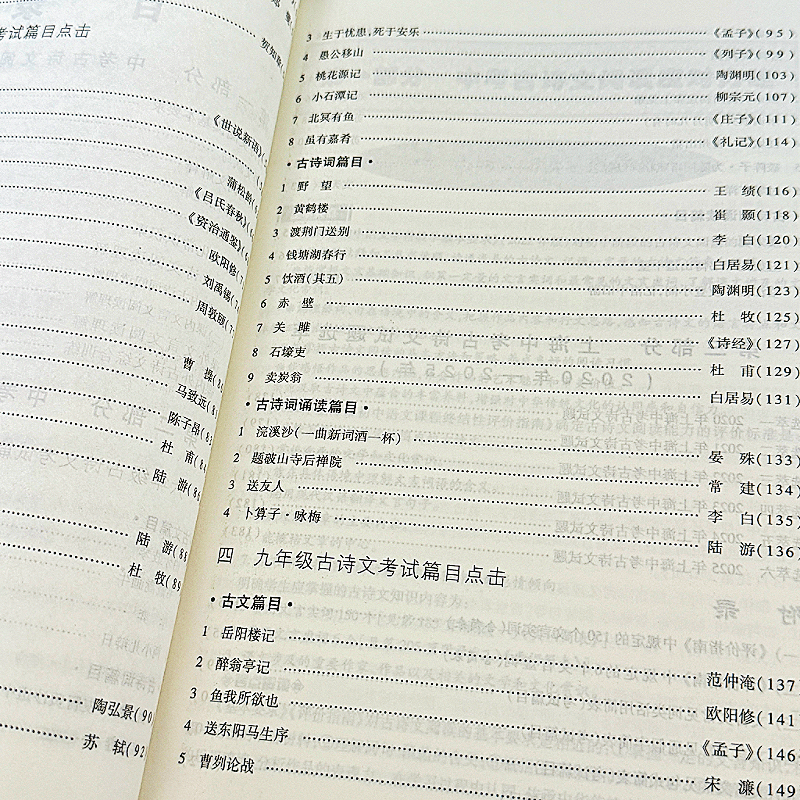 考试篇目点击
贺知章
《世说新语》(
蒲松龄(
《吕氏春秋》(
《资治通鉴》(
欧阳修(
刘禹锡(
周敦颐(
曹 操(
马致远(
陈子昂(8
杜 甫(8
陆 游(8
陆 游(8
杜 牧(89
陶弘景(90
苏 轼(92
3 生于忧患,死于安乐 《孟子》(95)
4 愚公移山 《列子》(99)
5 桃花源记 陶渊明(103)
6 小石潭记 柳宗元(107)
7 北冥有鱼 《庄子》(111)
8 虽有嘉肴 《礼记》(114)
·古诗词篇目·
1 野 望 王 绩(116)
2 黄鹤楼 崔 颢(118)
3 渡荆门送别 李 白(120)
4 钱塘湖春行 白居易(121)
5 饮酒(其五) 陶渊明(123)
6 赤 壁 杜 牧(125)
7 关 雎 《诗经》(127)
8 石壕吏 杜 甫(129)
9 卖炭翁 白居易(131)
·古诗词诵读篇目·
1 浣溪沙(一曲新词酒一杯) 晏 殊(133)
2 题破山寺后禅院 常 建(134)
3 送友人 李 白(135)
4 卜算子·咏梅 陆 游(136)
四 九年级古诗文考试篇目点击
·古文篇目·
1 岳阳楼记 范仲淹(137
2 醉翁亭记 欧阳修(141
3 鱼我所欲也 《孟子》(146
4 送东阳马生序 宋 濂(149
5 曹刿论战